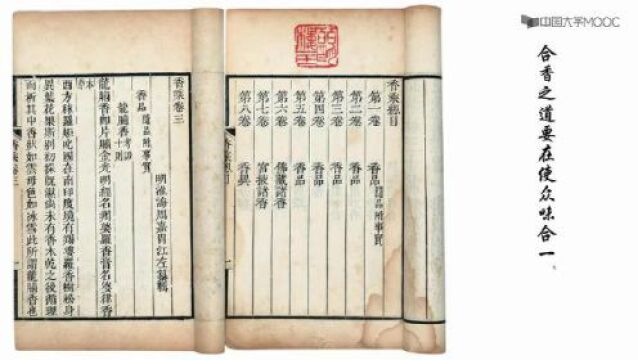 中国大学MOOC
合香之道要在使众味合一。
香乘總目
第一卷 香品 隨品附事實
第二卷 香品
第三卷 香品
第四卷 香品
第五卷 香品
第六卷 佛藏諸香
第七卷 宮掖諸香
第八卷 香異
香乘卷三
明 淮海周嘉胄江左 纂輯
香品 隨品附事實
龍腦香 考證十則
龍腦香即片腦金光明經名羯婆羅香膏名婆律香
本草
西方秣羅矩吒國在南印度境有羯婆羅香樹松身
異葉花果斯別初採既濕尚未有香木乾之後循理
而析其中香狀如雲母色如冰雪此所謂龍腦香也
香乘卷三